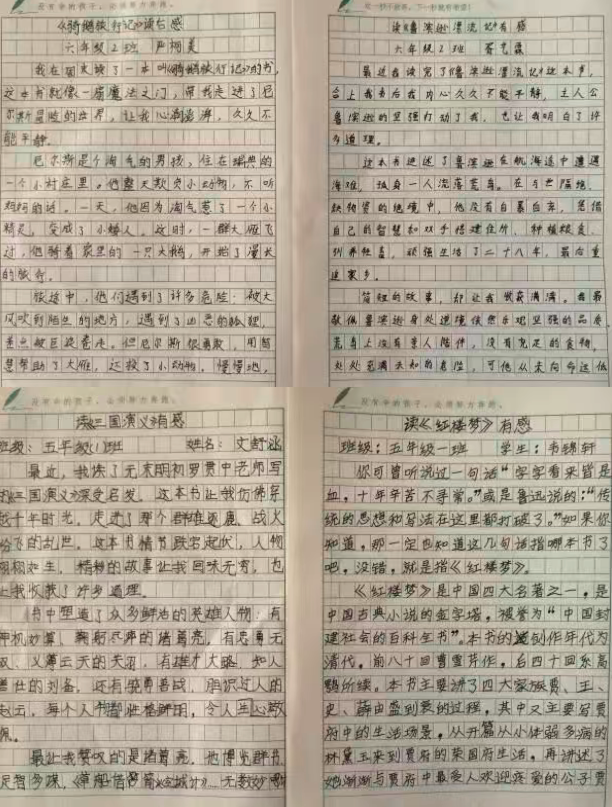 没有伞的孩子，必须努力奔跑。
《骑鹅旅行记》读后感
六年级2班 严栩
我在周末读了一本叫《骑鹅旅行记》的书，
这本书就像一扇魔法之门，带我走进了尼
尔斯冒险的世界，让我心潮澎湃，久久不
能平静。
尼尔斯是个淘气的男孩，住在瑞典的
一个小村庄里。他整天欺负小动物，不听
妈妈的话。一天，他因为淘气惹了一个小
精灵，变成了小矮人。这时，一群大雁飞
过，他骑着家里的一只大鹅，开始了漫长
的旅行。
旅途中，他们遇到了许多危险：被大
风吹到陌生的地方，遇到了凶恶的狐狸，
差点被巨浪卷走。但尼尔斯很勇敢，用智
慧帮助了大雁，还救了小动物，慢慢地，
读《鲁滨逊漂流记》有感
六年级2班
最近我读完了《鲁滨逊漂流记》这本书，
合上我书后我内心久久不能平静，主人公
鲁滨逊的坚强打动了我，也让我明白了许
多道理。
这本书讲述了鲁滨逊在航海途中遭遇
海难，孤身一人流落荒岛。在与世隔绝、
缺物资的绝境中，他没有自暴自弃，凭借
自己的智慧和双手搭建住所，种植粮食，
驯养牲畜，顽强生活了二十八年，最后重
返家乡。
简短的故事，却让我收获满满。我最
敬佩鲁滨逊身处逆境依然乐观坚强的品质，
荒岛上没有亲人陪伴，没有充足的食物，
处处充满未知的危险，可他从未向命运低
没有伞的孩子，必须努力奔跑。
读《三国演义》有感
班级：五年级(1)班 姓名：文舒涵
最近，我读了元末明初罗贯中老师写
的《三国演义》深受启发。这本书让我仿佛穿
越千年时光，走进了那个群雄逐鹿、战火
纷飞的乱世。这本书情节跌宕起伏，人物
栩栩如生，精彩的故事让我回味无穷，也
让我收获了许多道理。
书中塑造了众多鲜活的英雄人物：有
神机妙算、鞠躬尽瘁的诸葛亮，有忠勇无
双、义薄云天的关羽，有雄才大略、知人
善任的刘备，还有骁勇善战，胆识过人的
赵云，每个人物都性格鲜明，令人生心敬
佩。
最让我赞叹的是诸葛亮，他博览群书，
足智多谋，《草船借箭》《空城计》…无数妙
没有伞的孩子，必须努力奔跑。
读《红楼梦》有感
班级：五年级一班 学生：韦锦轩
你可曾听说过一句话“字字看来皆是
血，十年辛苦不寻常。”或是鲁迅说的：“传
统的思想和写法在这里都打破了。”如果你
知道，那一定也知道这几句话指哪本书了
吧，没错，就是指《红楼梦》。
《红楼梦》是中国四大名著之一，是
中国古典小说的金字塔，被誉为“中国封
建社会的百科全书”。本书的创作年代为
清代，前八十回曹雪芹作，后四十回系高
鹗所续。本书主要讲了四大家族贾、王、
史、薛由盛到衰的过程，其中又主要写贾
府中的生活场景，从开篇从小体弱多病的
林黛玉来到贾府的荣国府生活，再讲述了
她渐渐与贾府中最受人欢迎疼爱的公子贾